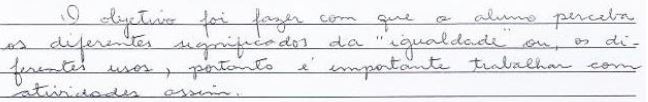 O objetivo foi fazer com que o aluno perceba
os diferentes significados da "igualdade" ou, os di-
ferentes usos, portanto é importante trabalhar com
atividades assim.